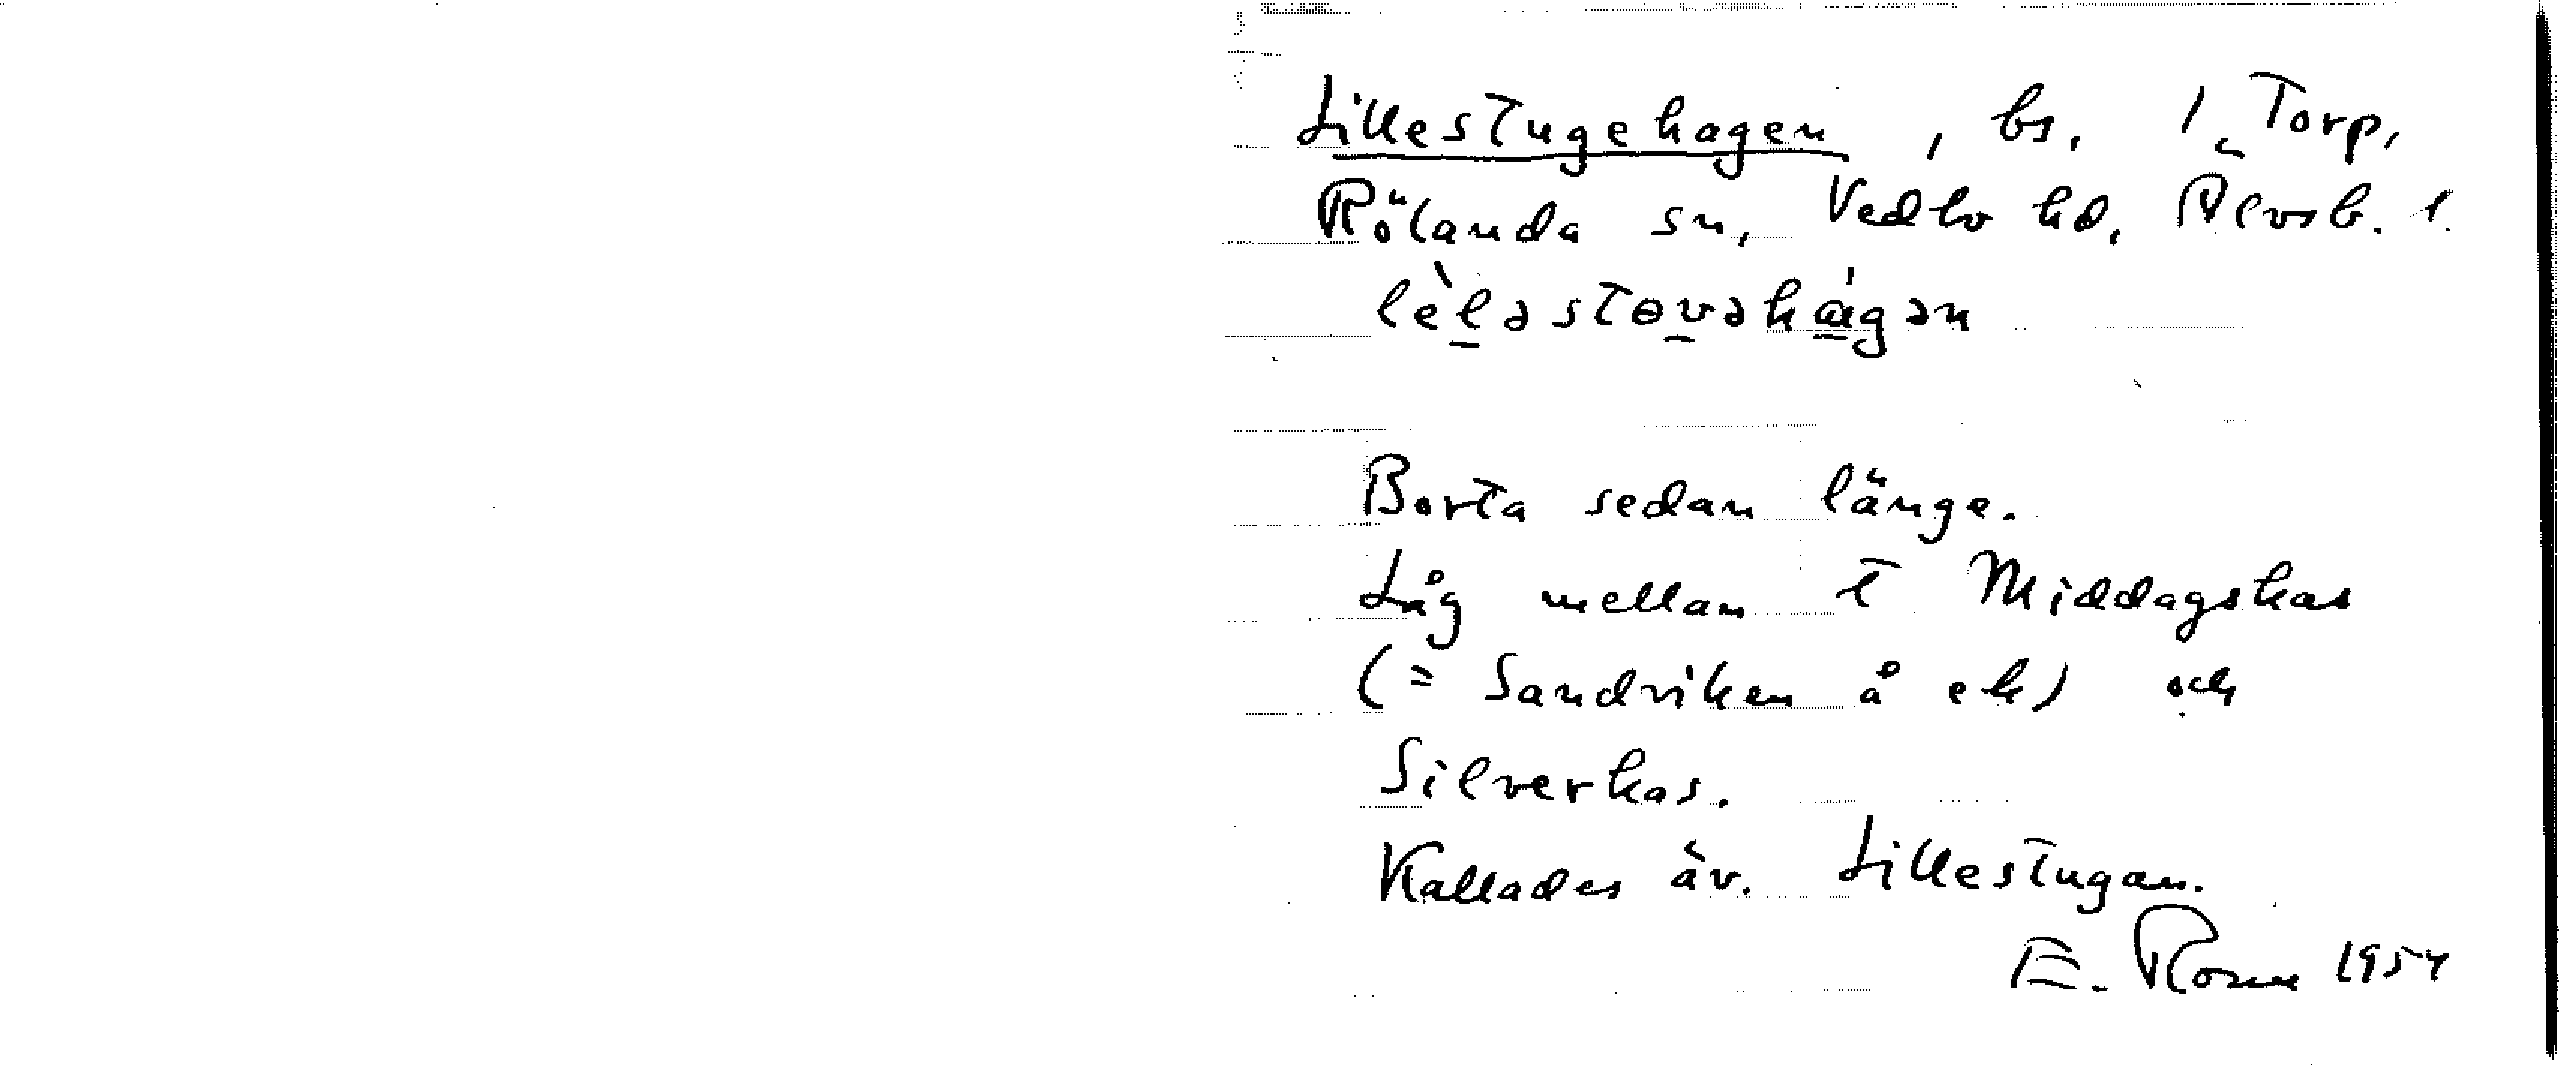 Lillestugehagen, bs. 1, Torp,
Rölanda sn, Vedbo hd, Älvsb. l.
lèləstɵvəhágən
Borta sedan länge.
Låg mellan t Middagskas
(= Sandviken å ek) och
Silverkas.
Kallades äv. Lillestugan.
E. 1954